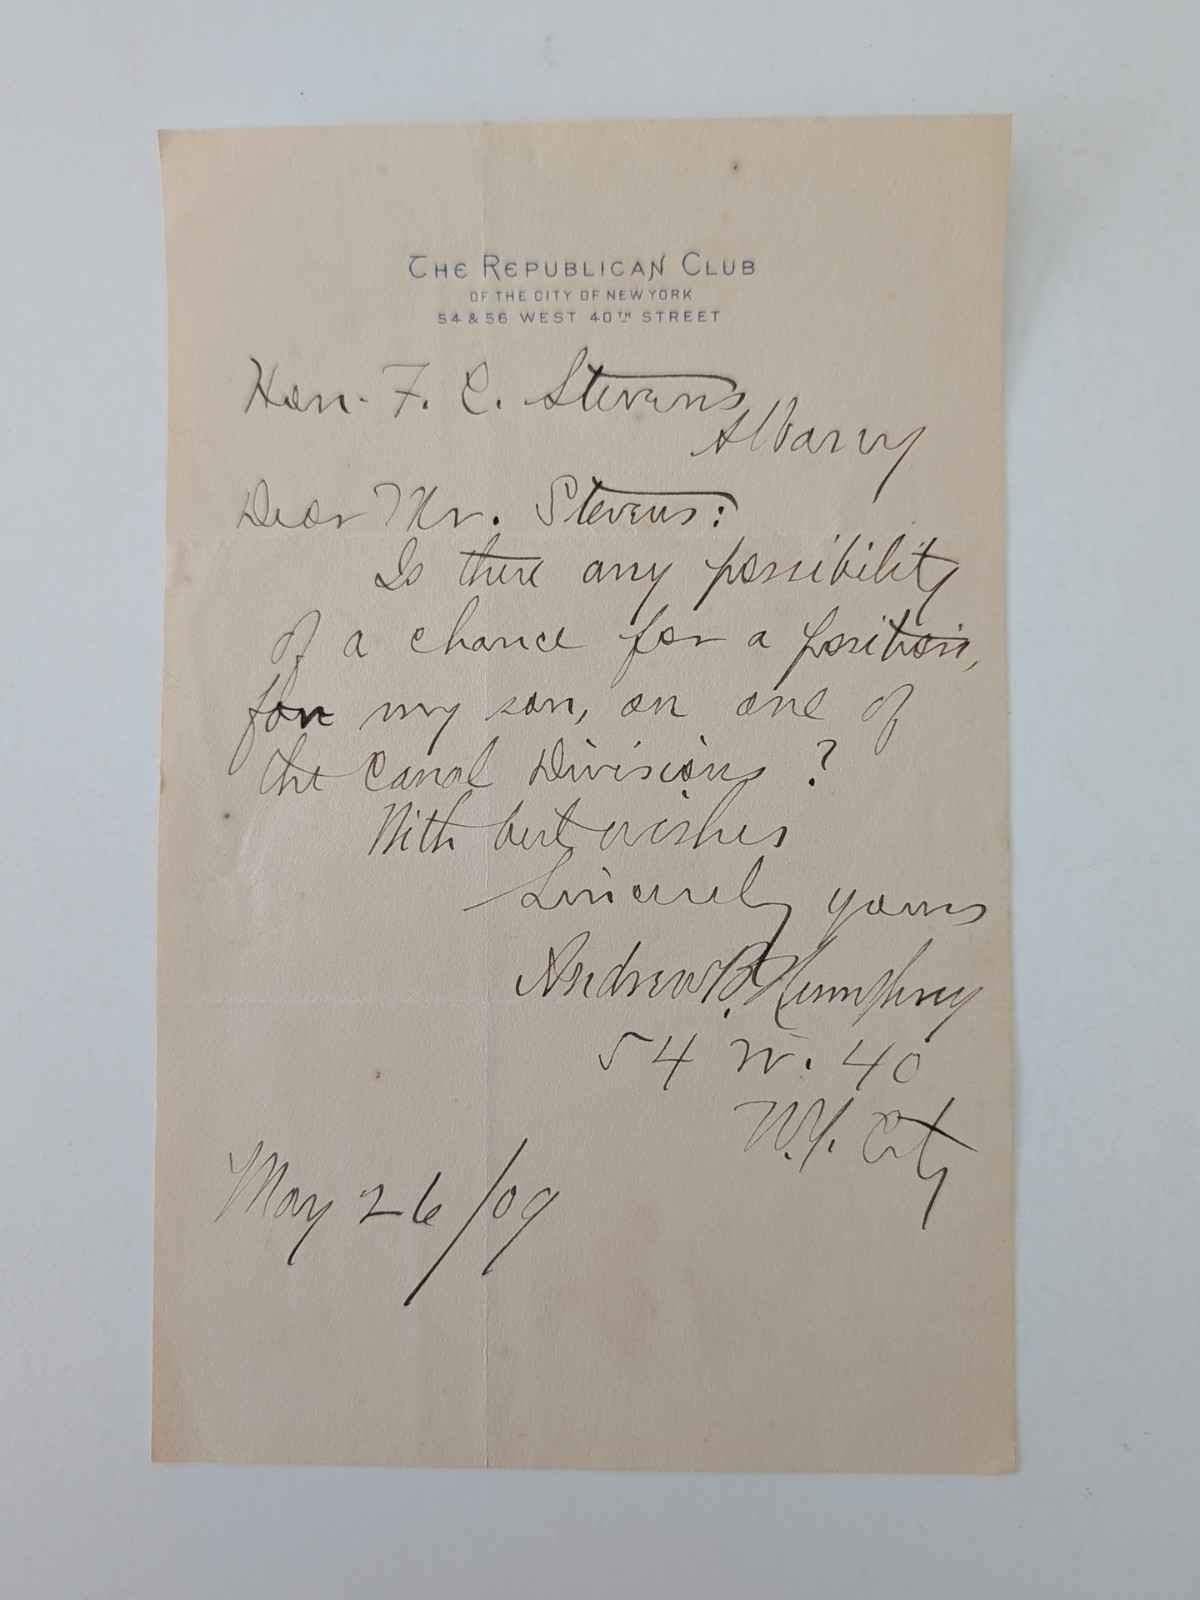 THE REPUBLICAN CLUB
OF THE CITY OF NEW YORK
54 & 56 WEST 40TH STREET
Hon. F. C. Stevens
Albany
Dear Mr. Stevens:
Is there any possibility
of a chance for a position,
for my son, on one of
the Canal Divisions?
With best wishes
Sincerely yours
Andrew B. Humphrey
54 W. 40
N.Y. City
May 26/09